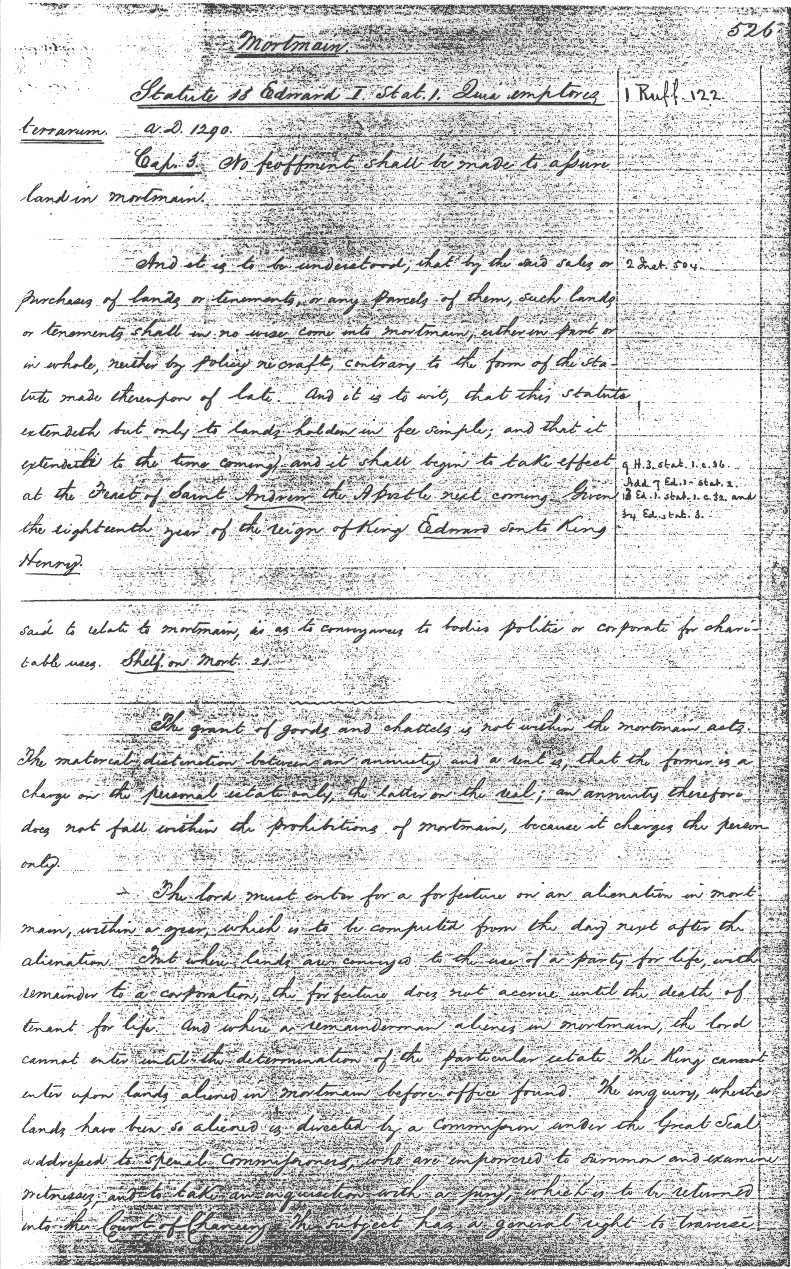 526
Mortmain.
Statute 18 Edward I. Stat. 1. Quia emptores
1 Ruff. 122
terrarum. a.D. 1290.
Cap. 3. No feoffment shall be made to assure
land in mortmain.
And it is to be understood, that by the said sales or
2 Inst. 504.
purchases of lands or tenements, or any parcels of them, such lands
or tenements shall in no wise come into mortmain, either in part or
in whole, neither by policy ne craft, contrary to the form of the sta-
tute made thereupon of late. And it is to wit, that this statute
extendeth but only to lands holden in fee simple; and that it
extendeth to the time coming; and it shall begin to take effect
at the Feast of Saint Andrew the Apostle next coming. Given
the eighteenth year of the reign of King Edward son to King
Henry.
9 H. 3. stat. 1. c. 36.
Add 7 Ed. 1. stat. 2.
13 Ed. 1. stat. 1. c. 32. and
34 Ed. stat. 3.
said to relate to mortmain, is as to conveyances to bodies politic or corporate for chari-
table uses. Shelf. on Mort. 21.
The grant of goods and chattels is not within the mortmain acts.
The material distinction between an annuity and a rent is, that the former is a
charge on the personal estate only, the latter on the real; an annuity therefore
does not fall within the prohibitions of mortmain, because it charges the person
only.
The lord must enter for a forfeiture on an alienation in mort
main, within a year, which is to be computed from the day next after the
alienation. But where lands are conveyed to the use of a party for life, with
remainder to a corporation, the forfeiture does not accrue until the death of
tenant for life. And where a remainderman aliens in mortmain, the lord
cannot enter until the determination of the particular estate. The King cannot
enter upon lands aliened in mortmain before office found. The inquiry, whether
lands have been so aliened is directed by a Commission under the Great Seal
addressed to special Commissioners, who are empowered to summon and examine
witnesses, and to take an inquisition with a jury, which is to be returned
into the Court of Chancery. The subject has a general right to traverse